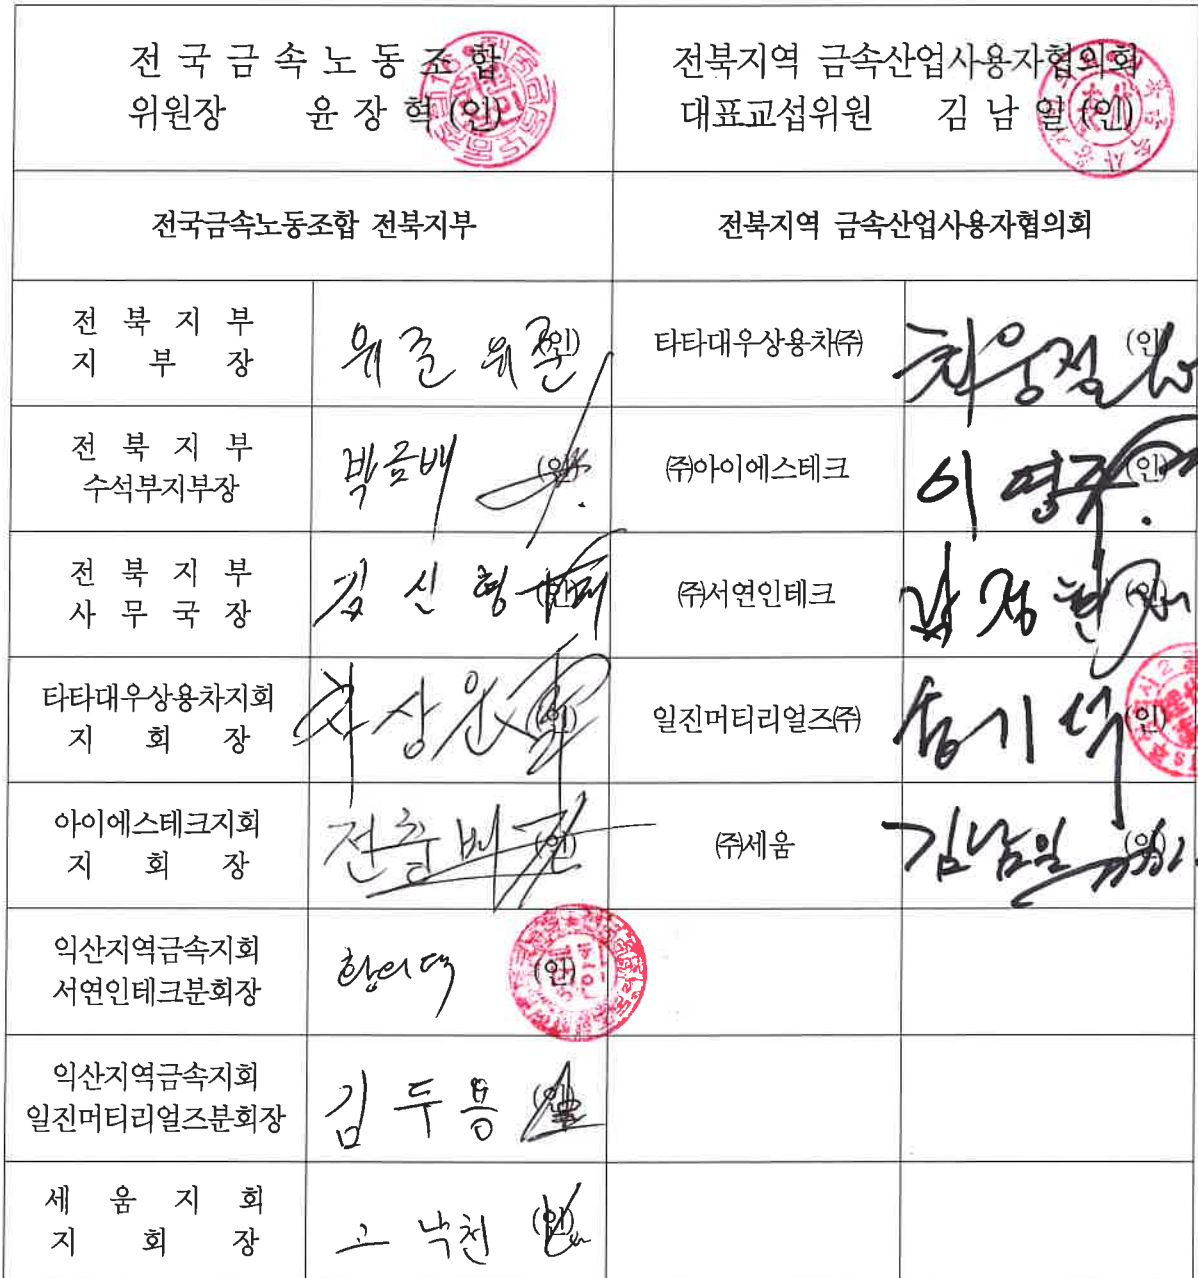 전 국 금 속 노 동 조 합
위원장 윤 장 혁 (인)
전북지역 금속산업사용자협의회
대표교섭위원 김 남 일 (인)
전국금속노동조합 전북지부
전북지역 금속산업사용자협의회
전 북 지 부
지 부 장
위 준 위준 (인)
타타대우상용차㈜
(인)
전 북 지 부
수석부지부장
박금배 (인)
㈜아이에스테크
이 영주 (인)
전 북 지 부
사 무 국 장
김 신 형 (인)
㈜서연인테크
(인)
타타대우상용차지회
지 회 장
차 상 원 (인)
일진머티리얼즈㈜
송기석 (인)
아이에스테크지회
지 회 장
전춘배 (인)
㈜세움
김남일 (인)
익산지역금속지회
서연인테크분회장
(인)
익산지역금속지회
일진머티리얼즈분회장
김 두 용 (인)
세 움 지 회
지 회 장
고 낙천 (인)